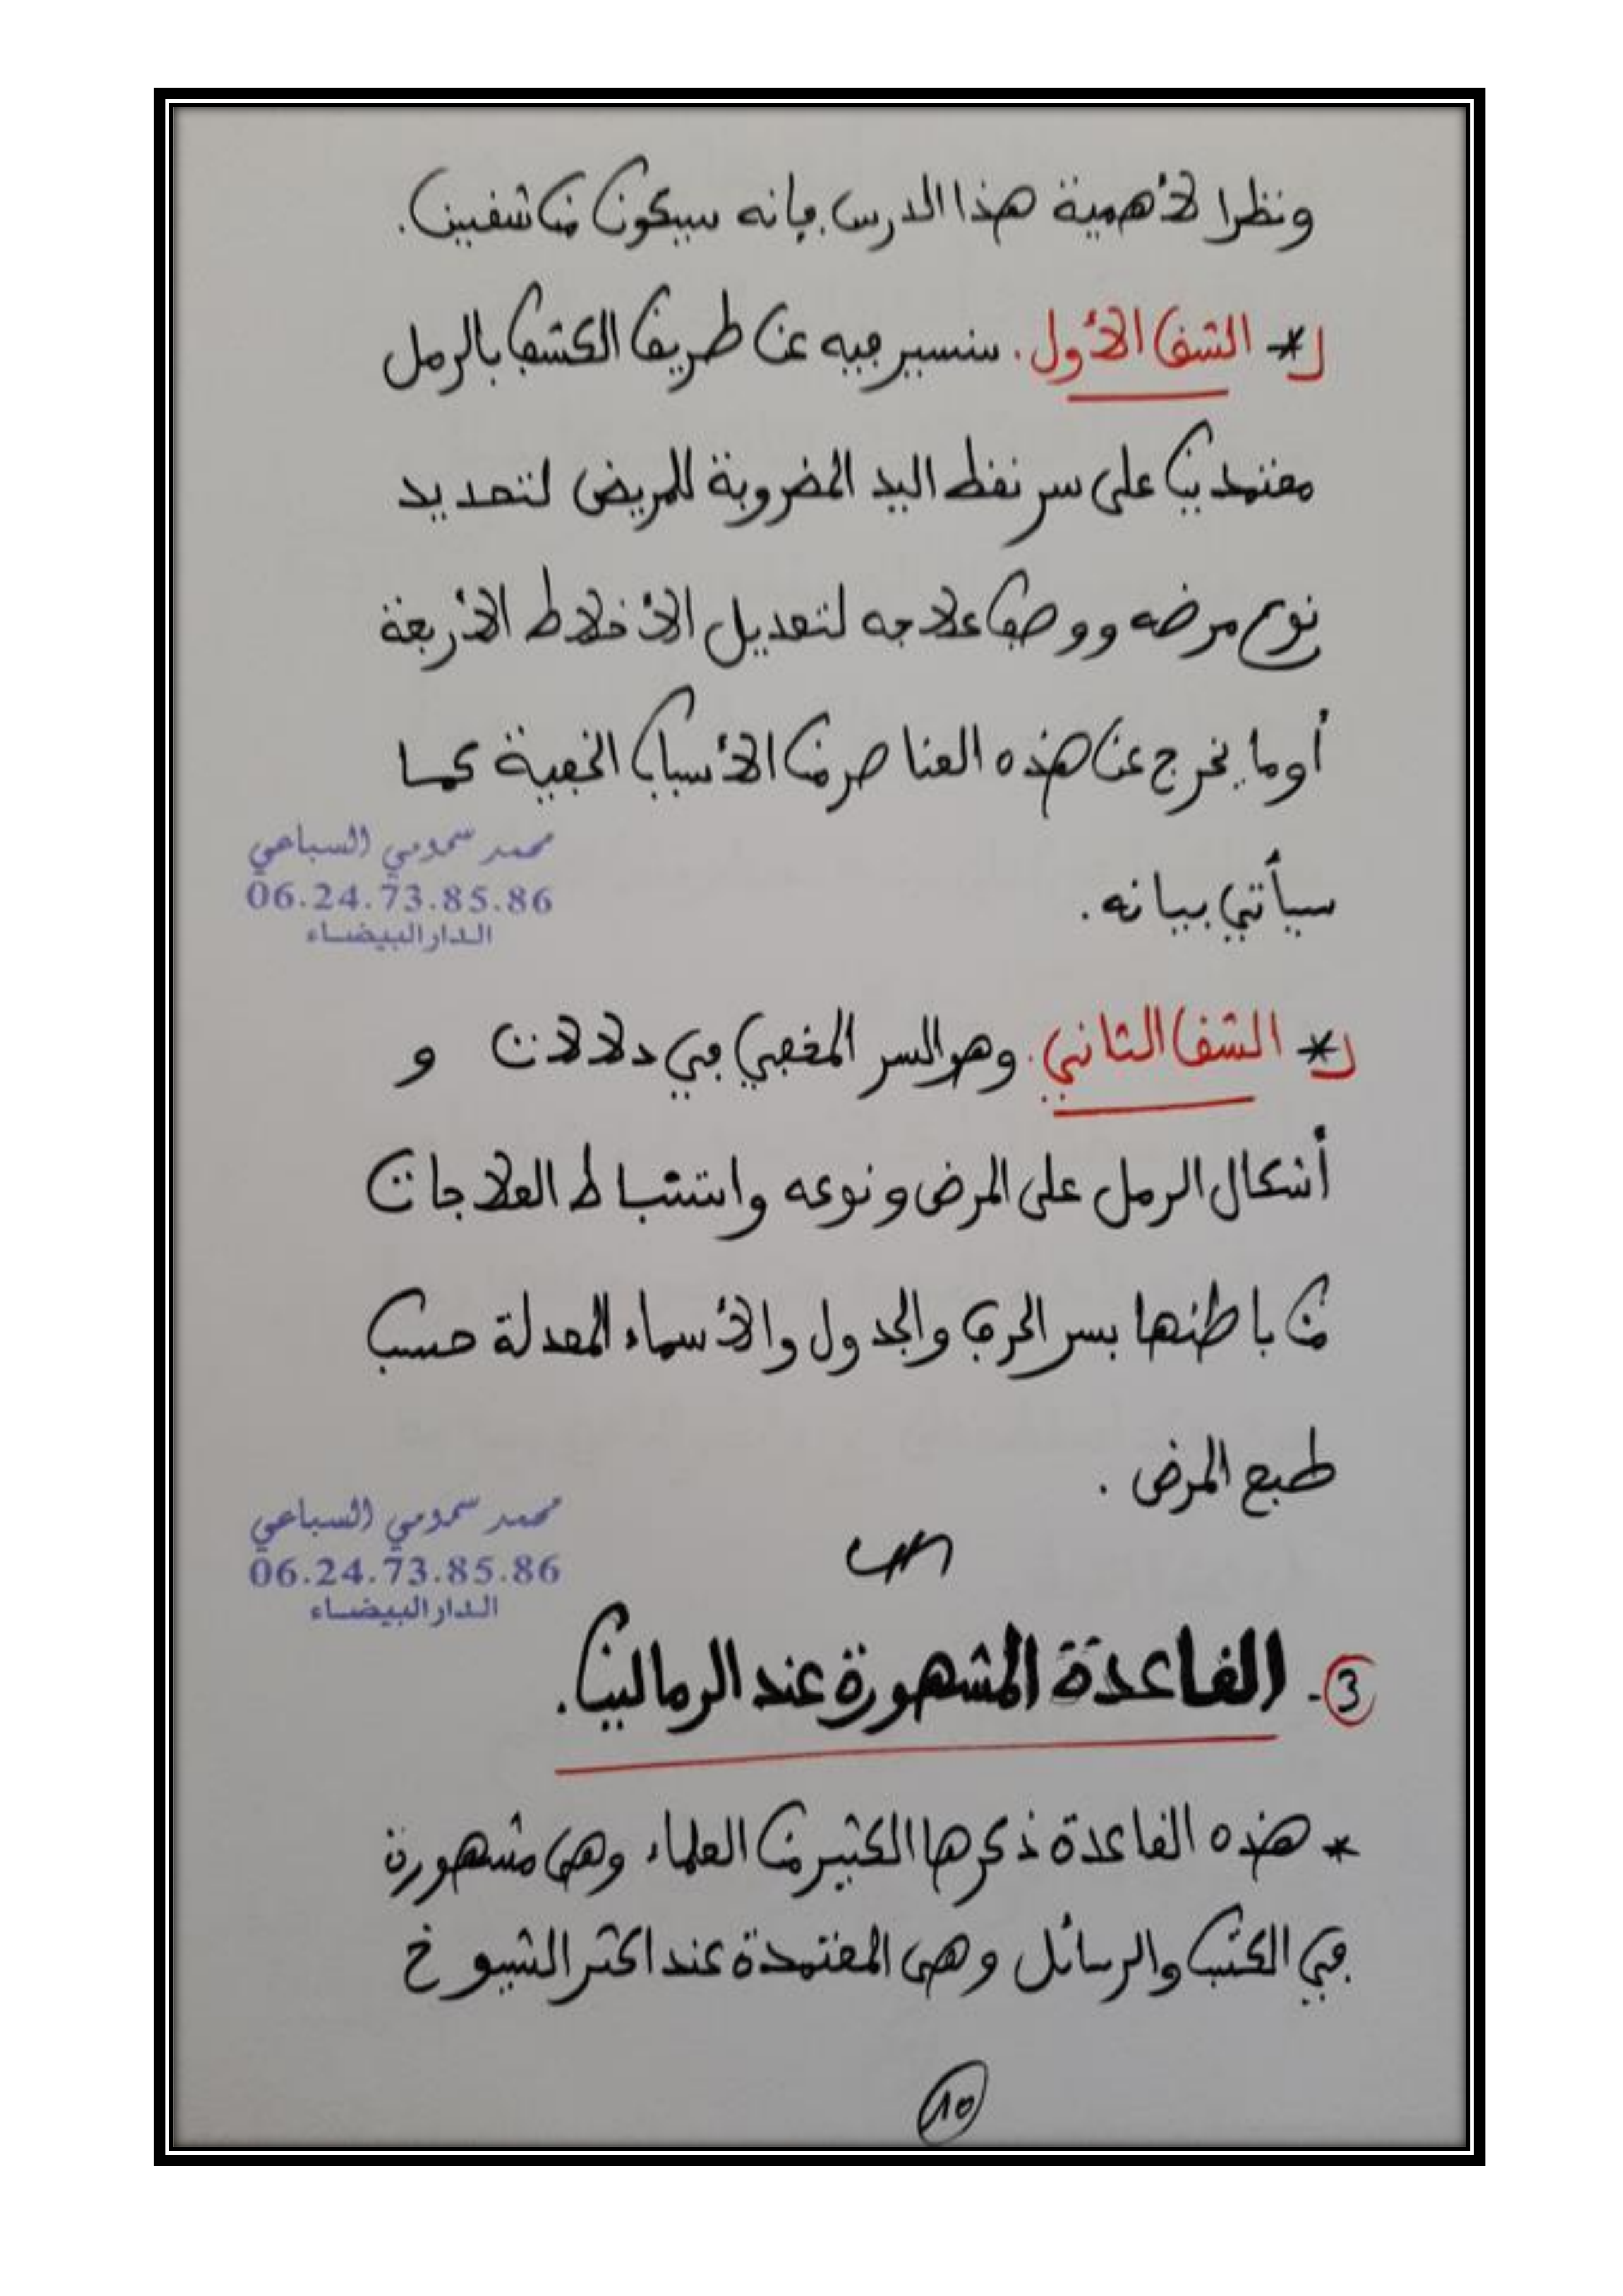 ونظرا لأهمية هذا الدرس فإنه سيكون من شقين.
* الشق الأول. سنسير فيه عن طريق الكشف بالرمل
معتمدين على سر نقط اليد المضروبة للمريض لتحديد
نوع مرضه ووصف علاجه لتعديل الأخلاط الأربعة
أو ما يخرج عن هذه العناصر من الأسباب الخفية كما
سيأتي بيانه.
محمد سمومي السباعي
06.24.73.85.86
الدار البيضاء
* الشق الثاني. وهو السر المخفي في دلالات و
أشكال الرمل على المرض ونوعه واستنباط العلاجات
من باطنها بسر الحرف والجدول والأسماء المعدلة حسب
طبع المرض.
محمد سمومي السباعي
06.24.73.85.86
الدار البيضاء
3- القاعدة المشهورة عند الرمالين.
* هذه القاعدة ذكرها الكثير من العلماء وهي مشهورة
في الكتب والرسائل وهي المعتمدة عند اكثر الشيوخ
10